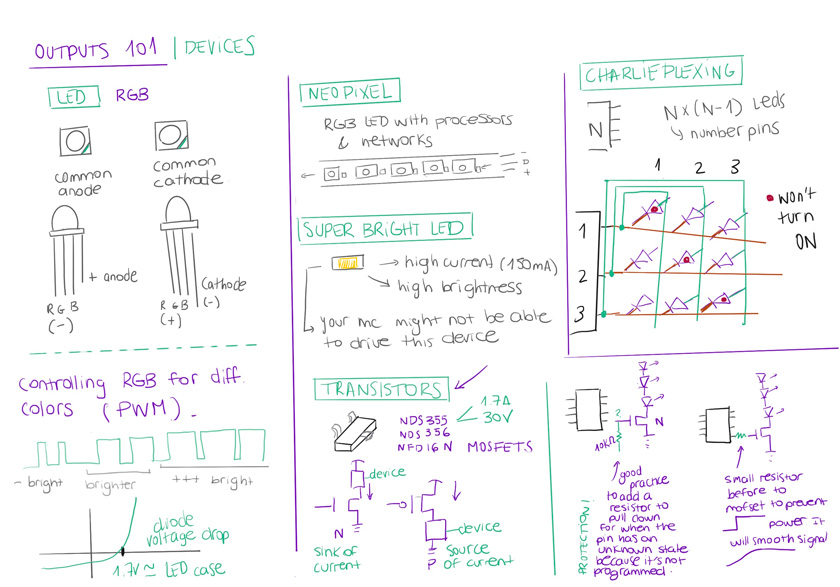 OUTPUTS 101 | DEVICES
LED RGB
common
anode
common
cathode
+ anode
R G B
(-)
Cathode
(-)
R G B
(+)
Controlling RGB for diff.
colors (PWM).
- bright
brighter
+++ bright
diode
voltage drop
1.7V ≃ LED case
NEOPIXEL
RGB LED with processors
& networks
-
D
+
SUPER BRIGHT LED
→ high current (150mA)
high brightness
your mc might not be able
to drive this device
TRANSISTORS
NDS355
NDS356
1.7A
30V
MOSFETS
device
N
sink of
current
device
source
P of current
CHARLIEPLEXING
N
N×(N-1) Leds
number pins
1 2 3
1
2
3
won't
turn
ON
10KΩ
PROTECTION!
good
practice
to add a
resistor to
pull down
for when the
pin has an
unknown state
because it's not
programmed.
small resistor
before to
mofset to prevent
power it
will smooth signal